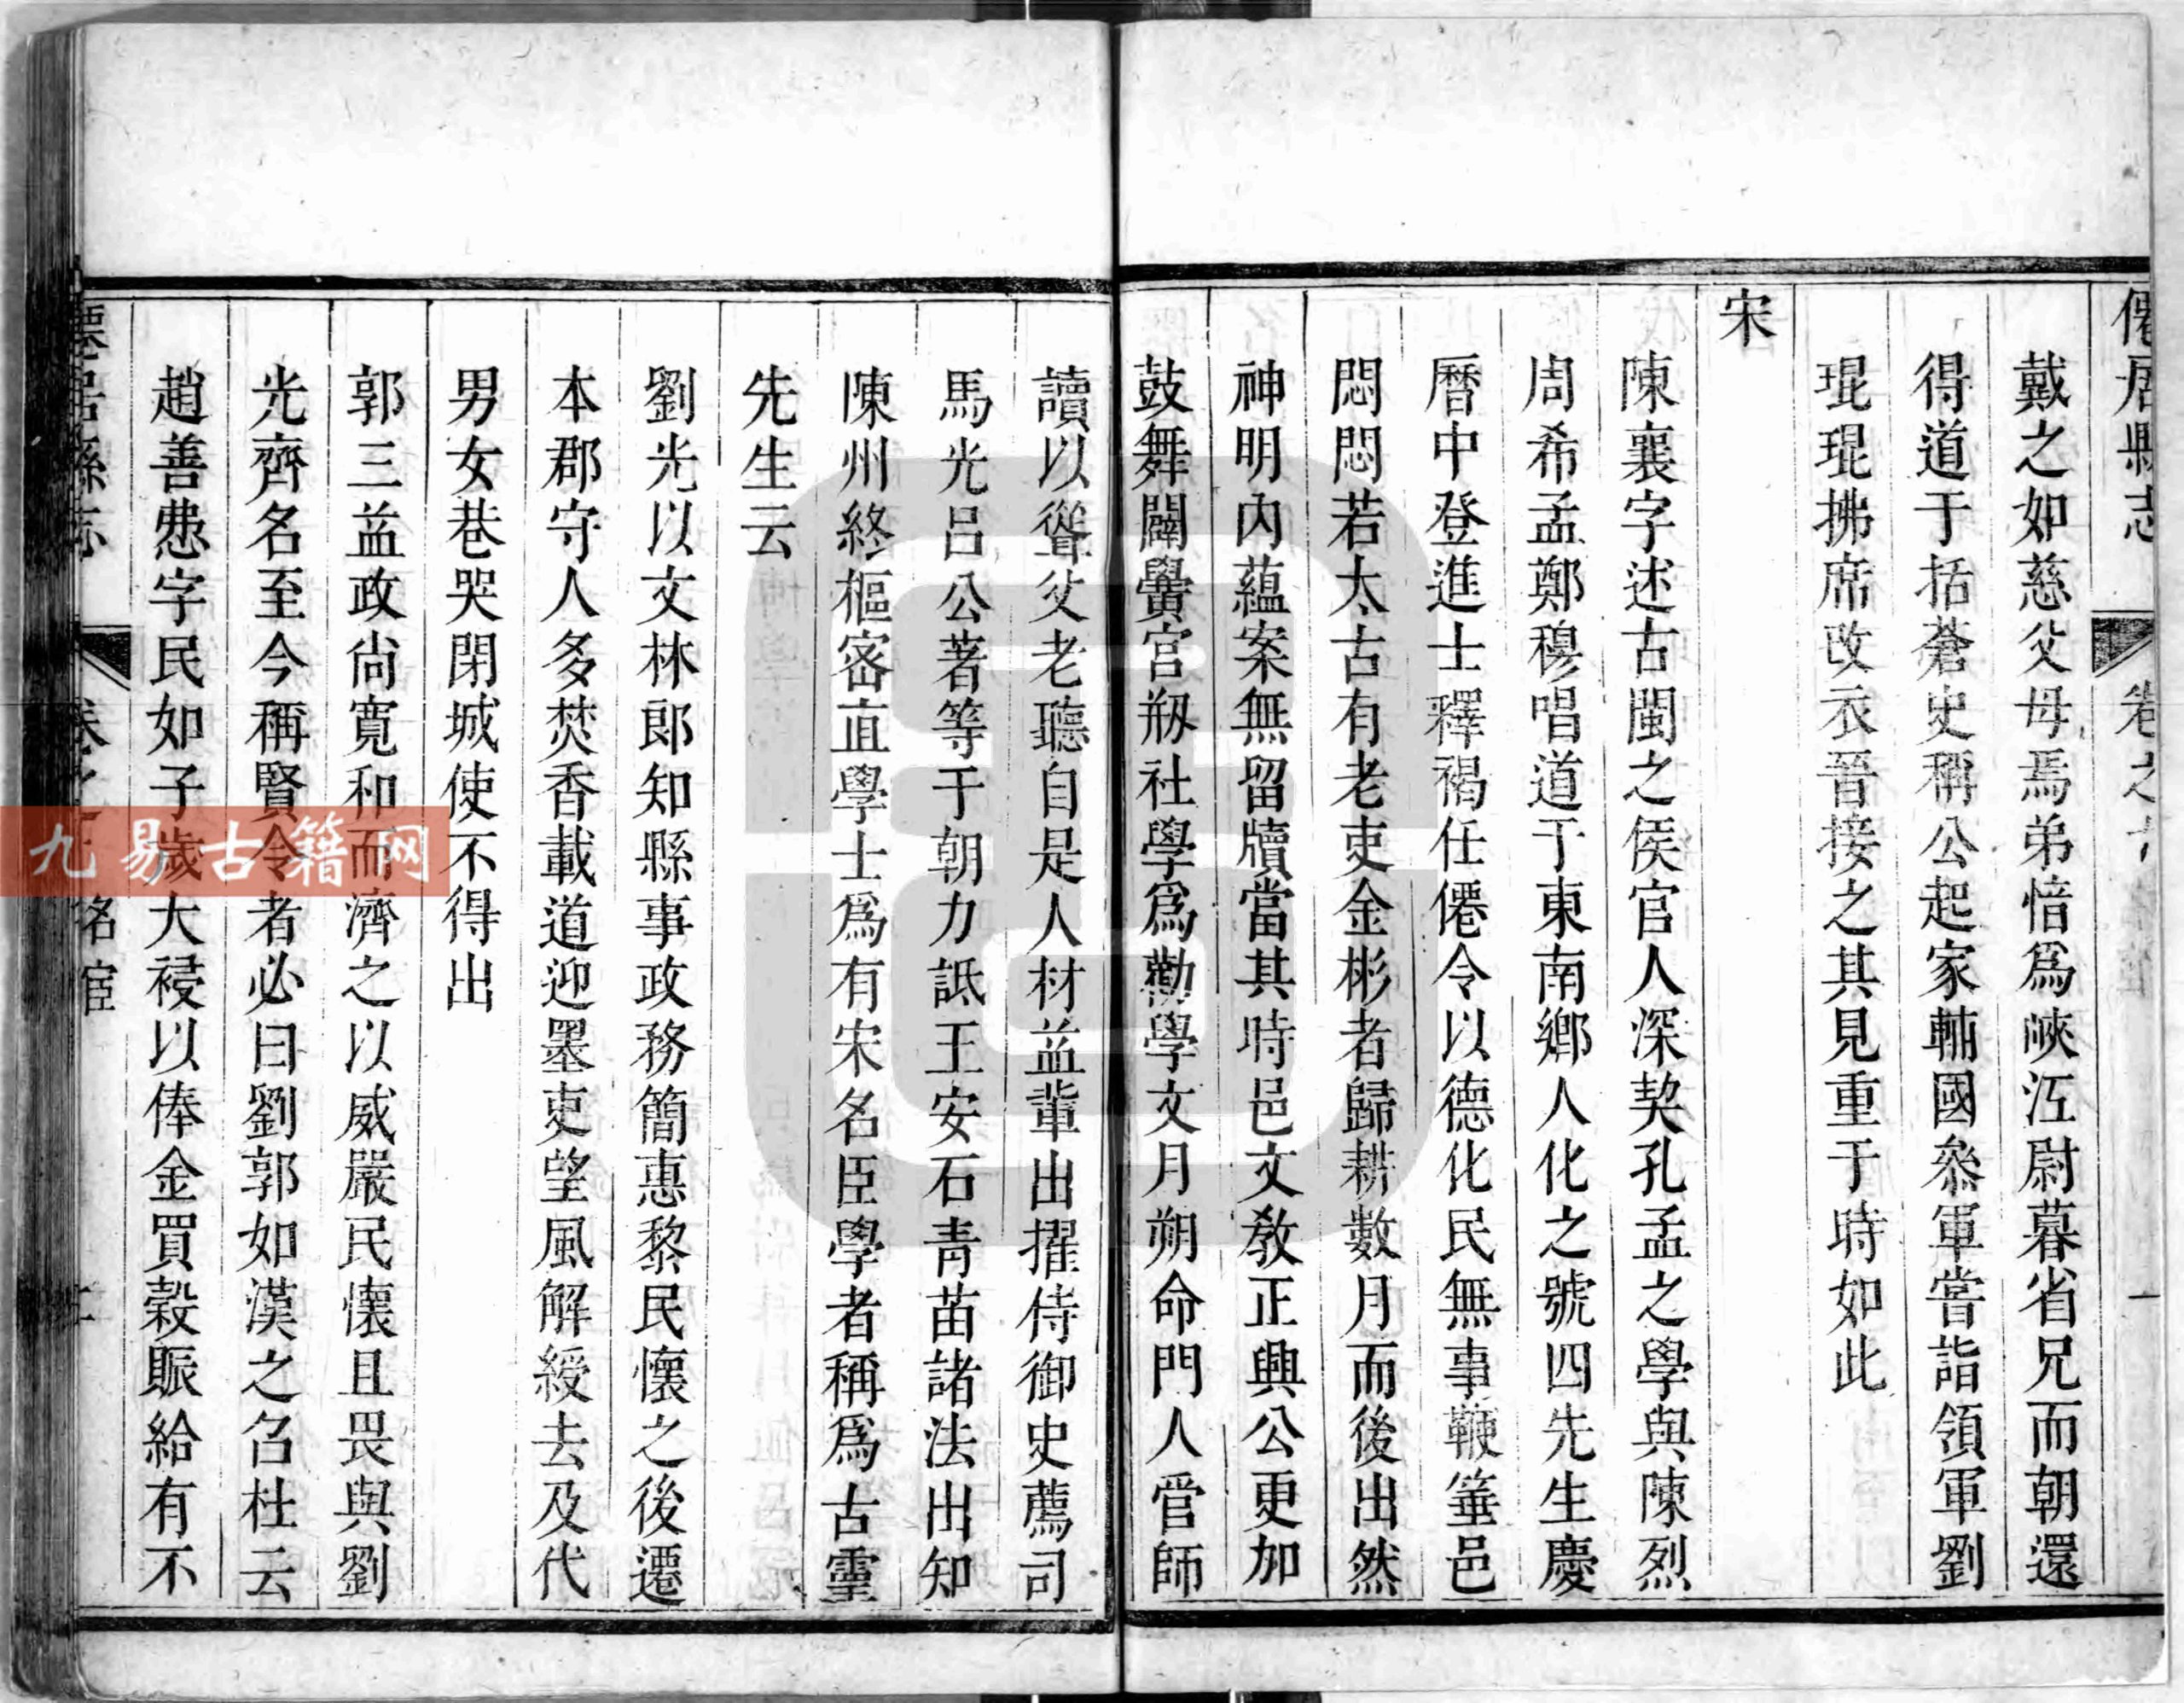 僊居縣志
卷之
一
戴之如慈父母焉弟愔爲峽江尉暮省兄而朝還
得道于括蒼史稱公起家輔國叅軍嘗詣領軍劉
琨琨拂席改衣晉接之其見重于時如此
宋
陳襄字述古閩之侯官人深契孔孟之學與陳烈
周希孟鄭穆唱道于東南鄉人化之號四先生慶
曆中登進士釋褐任僊令以德化民無事鞭箠邑
悶悶若太古有老吏金彬者歸耕數月而後出然
神明內蘊案無留牘當其時邑文敎正興公更加
鼓舞闢黌宮剏社學爲勸學文月朔命門人管師
讀以聳父老聽自是人材益輩出擢侍御史薦司
馬光呂公著等于朝力詆王安石靑苗諸法出知
陳州終樞宻直學士爲有宋名臣學者稱爲古靈
先生云
劉光以文林郎知縣事政務簡惠黎民懷之後遷
本郡守人多焚香載道迎墨吏望風解綬去及代
男女巷哭閉城使不得出
郭三益政尙寬和而濟之以威嚴民懷且畏與劉
光齊名至今稱賢令者必曰劉郭如漢之召杜云
趙善恵字民如子歲大祲以俸金買穀賑給有不
僊居縣志
卷之
名宦
二
九易古籍网